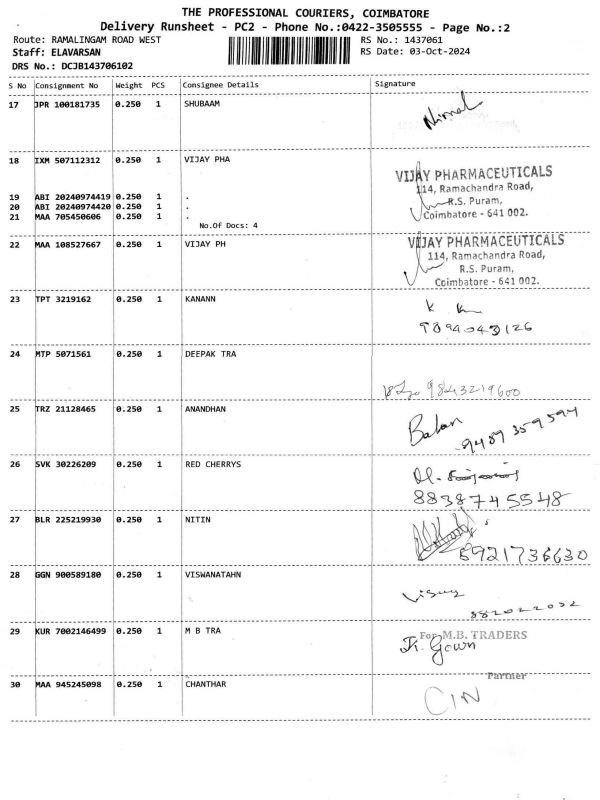 THE PROFESSIONAL COURIERS, COIMBATORE
Delivery Runsheet - PC2 - Phone No.:0422-3505555 - Page No.:2
Route: RAMALINGAM ROAD WEST RS No.: 1437061
Staff: ELAVARSAN RS Date: 03-Oct-2024
DRS No.: DCJB143706102
S No Consignment No Weight PCS Consignee Details Signature
17 JPR 100181735 0.250 1 SHUBAAM
Nirmal
18 IXM 507112312 0.250 1 VIJAY PHA
VIJAY PHARMACEUTICALS
114, Ramachandra Road,
19 ABI 20240974419 0.250 1 . R.S. Puram,
20 ABI 20240974420 0.250 1 .
21 MAA 705450606 0.250 1 . Coimbatore - 641 002.
No.Of Docs: 4
22 MAA 108527667 0.250 1 VIJAY PH VIJAY PHARMACEUTICALS
114, Ramachandra Road,
R.S. Puram,
Coimbatore - 641 002.
23 TPT 3219162 0.250 1 KANANN
9894043126
24 MTP 5071561 0.250 1 DEEPAK TRA
9843219600
25 TRZ 21128465 0.250 1 ANANDHAN
Balan
9489359594
26 SVK 30226209 0.250 1 RED CHERRYS
8838745548
27 BLR 225219930 0.250 1 NITIN
8921736630
28 GGN 900589180 0.250 1 VISWANATAHN
29 KUR 7002146499 0.250 1 M B TRA For M.B. TRADERS
Partner
30 MAA 945245098 0.250 1 CHANTHAR
CIN